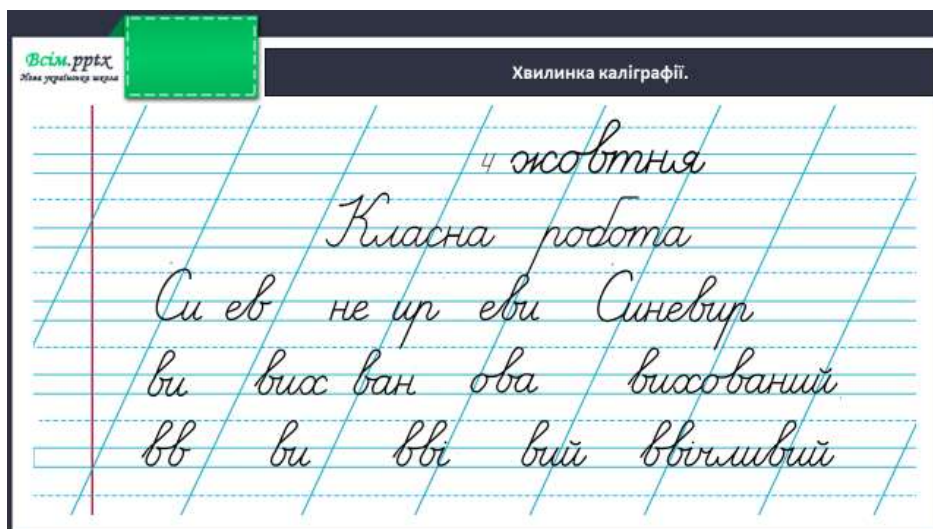 Всім.pptx
Нова українська школа
Хвилинка каліграфії.
4 жовтня
Класна робота
Си ев не ир еви Синевир
ви вих ван ова вихований
вв ви вві вий ввічливий